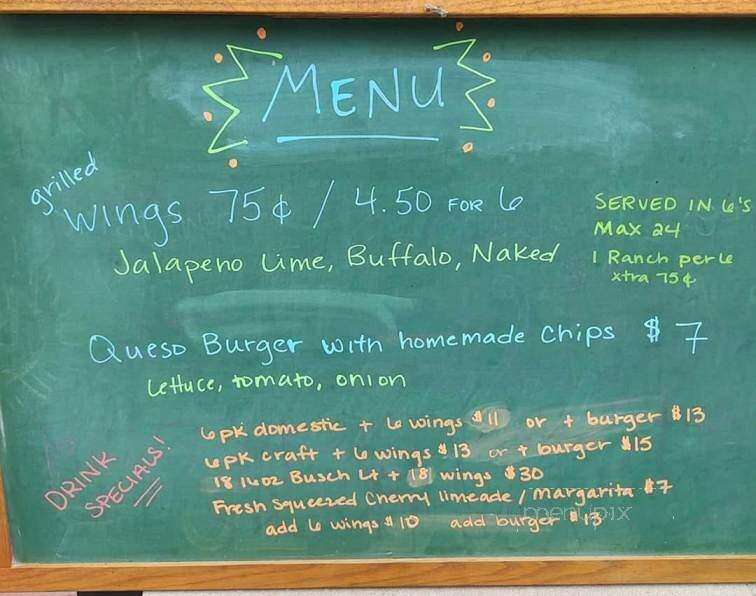 MENU
grilled
Wings 75¢ / 4.50 FOR 6
Jalapeno Lime, Buffalo, Naked
SERVED IN 6'S
Max 24
1 Ranch per 6
xtra 75¢
Queso Burger with homemade chips $ 7
Lettuce, tomato, onion
DRINK
SPECIALS!
6pk domestic + 6 wings $11 or + burger $13
6pk craft + 6 wings $13 or + burger $15
18 16oz Busch Lt + 18 wings $30
Fresh Squeezed Cherry limeade / margarita $7
add 6 wings $10 add burger $13
menupix